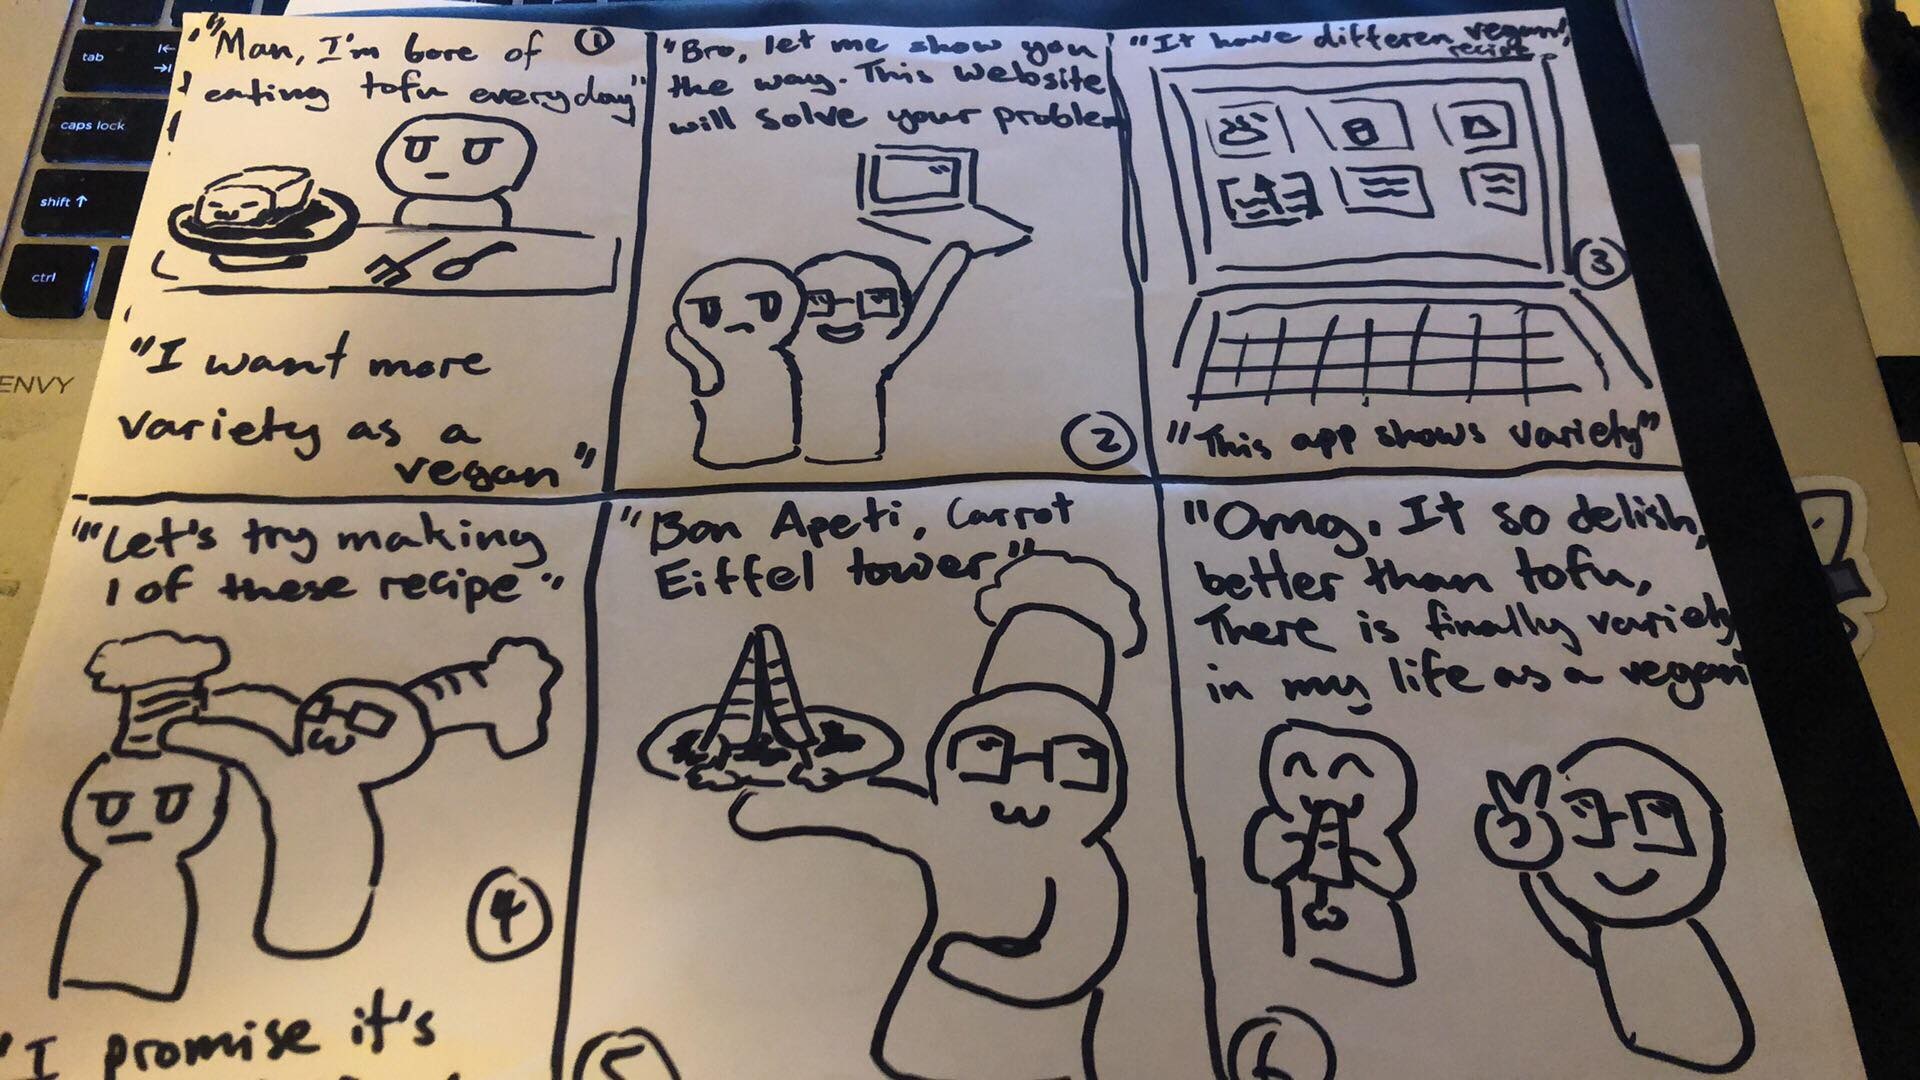 tab
caps lock
shift ↑
ctrl
ENVY
"Man, I'm bore of
eating tofu everyday"
①
"I want more
variety as a
vegan"
"Bro, let me show you
the way. This website
will solve your problem
②
"It have differen vegan
recipe
③
"This app shows variety"
"Let's try making
1 of these recipe"
④
"I promise it's
"Bon Apeti, Carrot
Eiffel tower"
5
"Omg. It so delish,
better than tofu,
There is finally variety
in my life as a vegan"
6